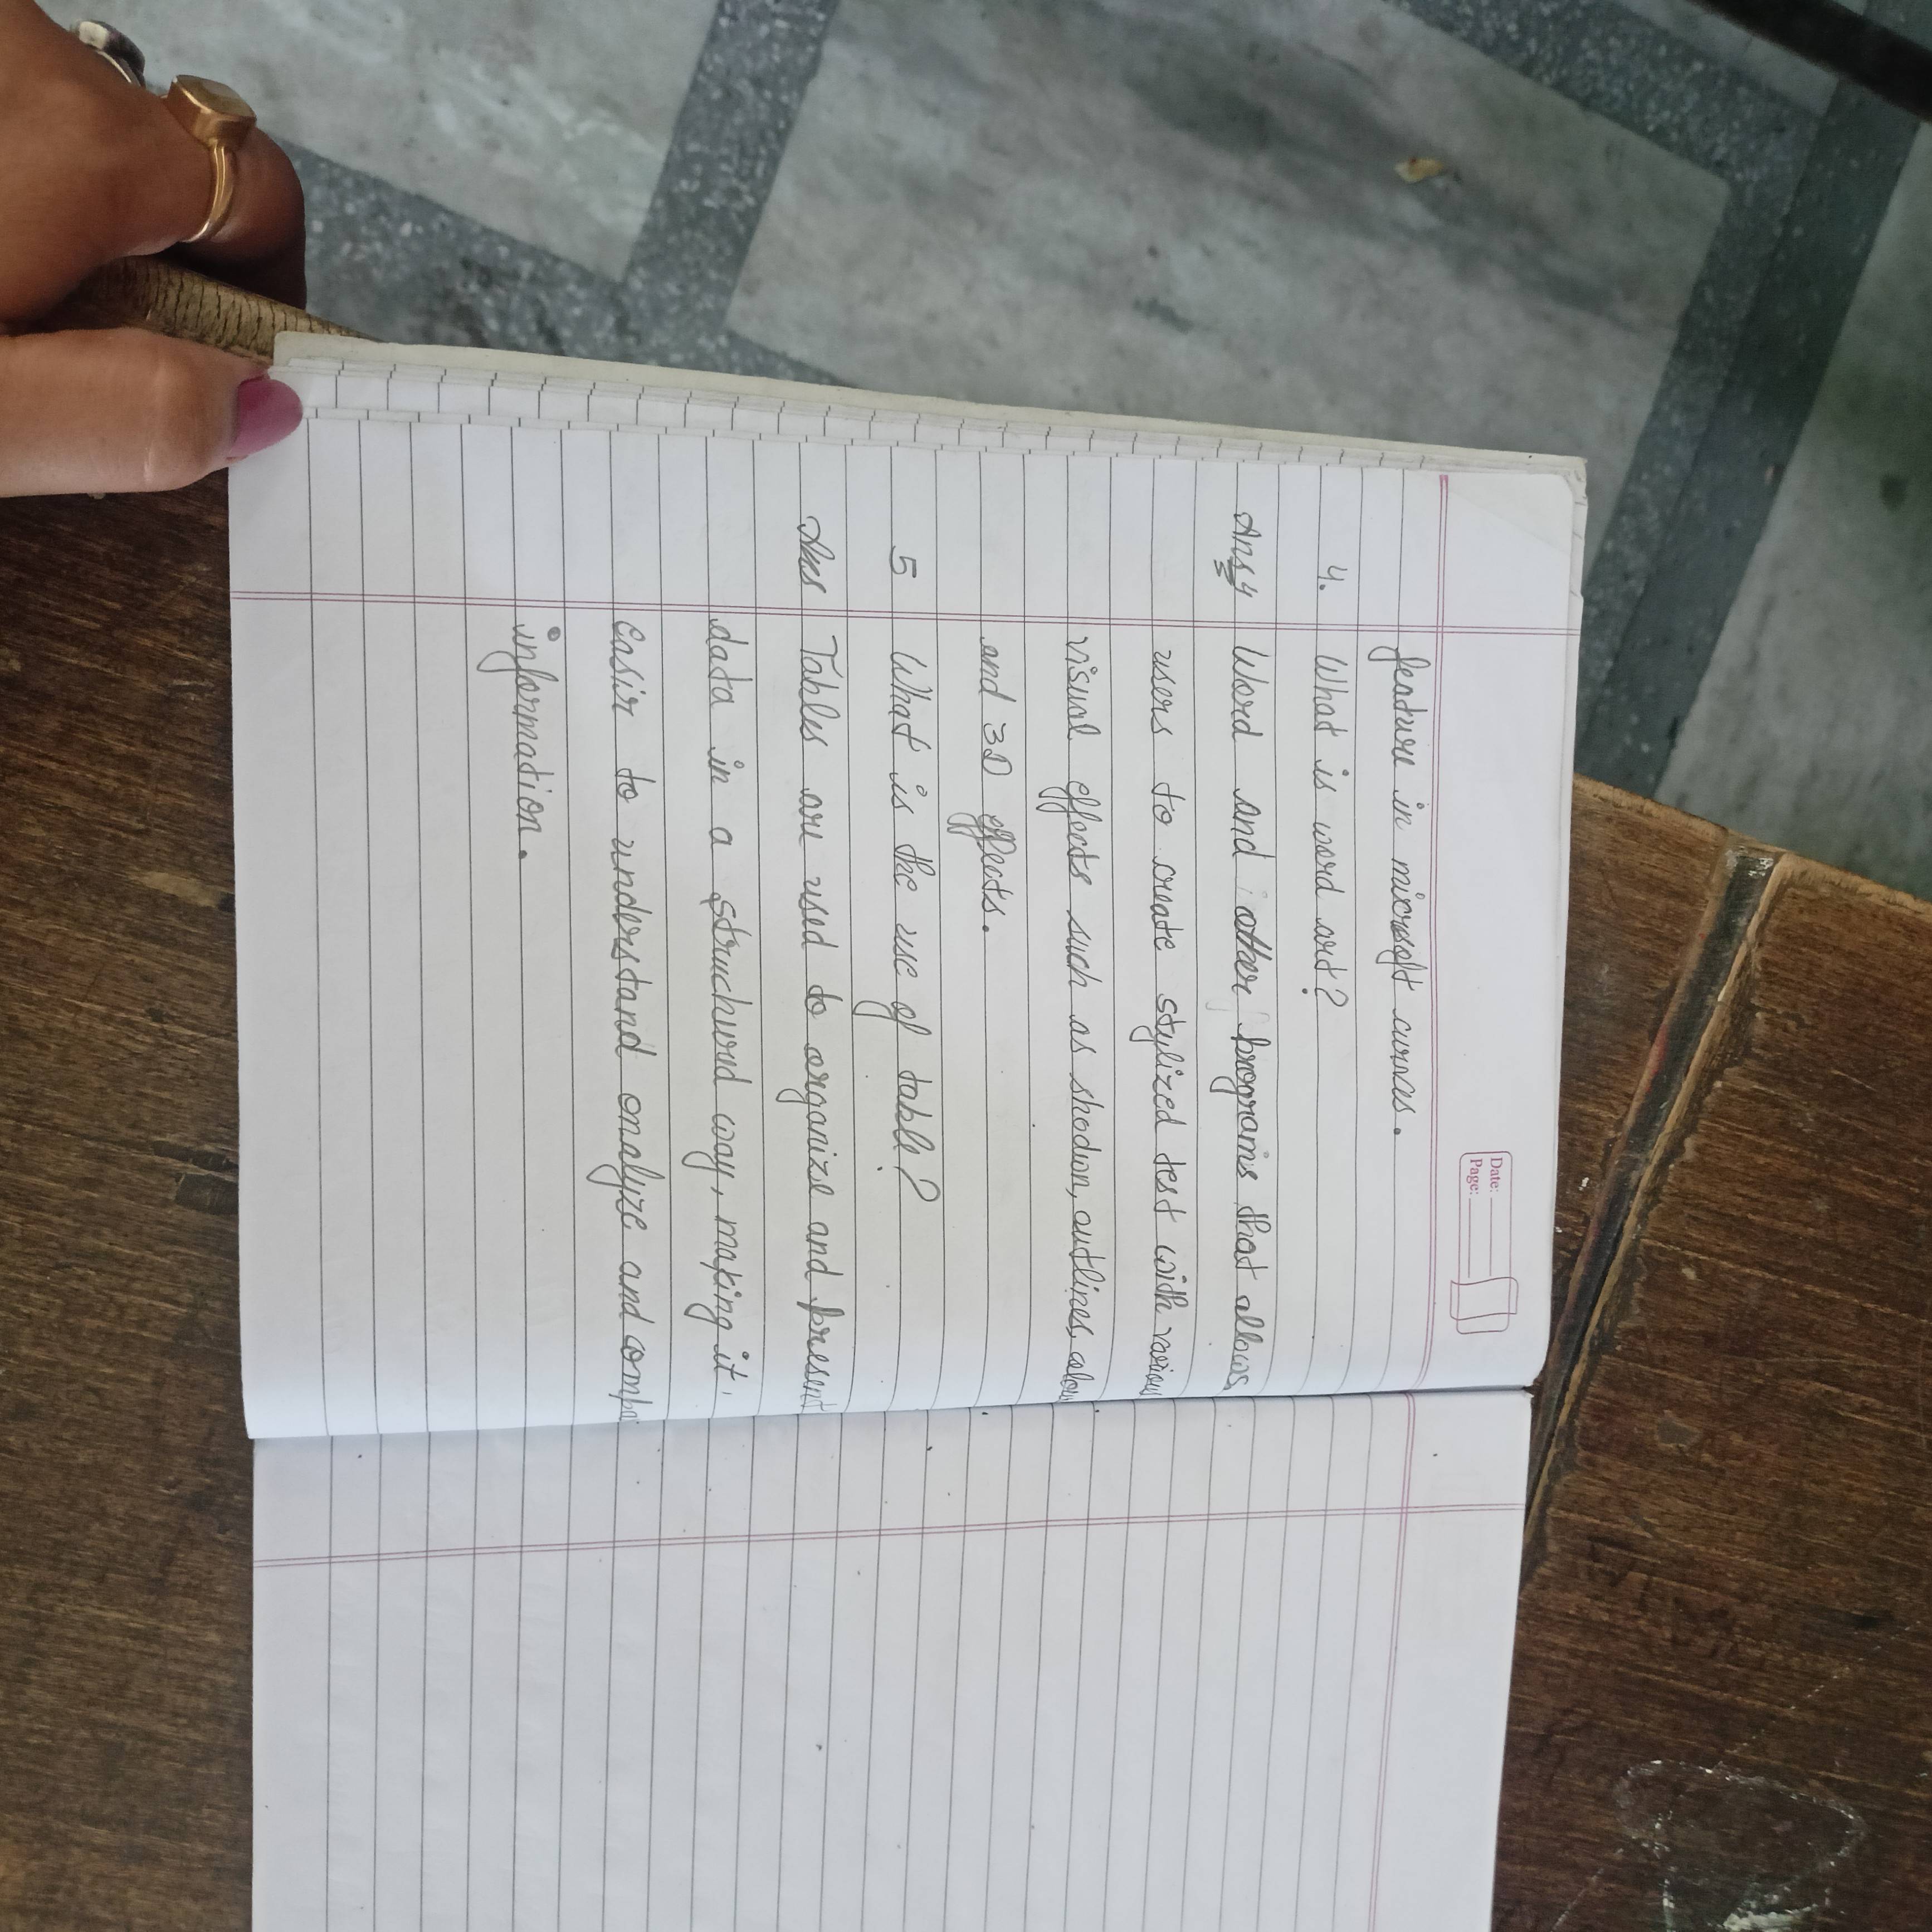 Date:
Page:
feature in microsoft curves.
4. What is word art?
Ans 4 Word and other programs that allows
users to create stylized test with various
visual effects such as shedion, outlines, colou
and 3D effects.
5 What is the use of table?
Ans Tables are used to organize and present
data in a structured way, making it
easir to understand analyze and compa
information.